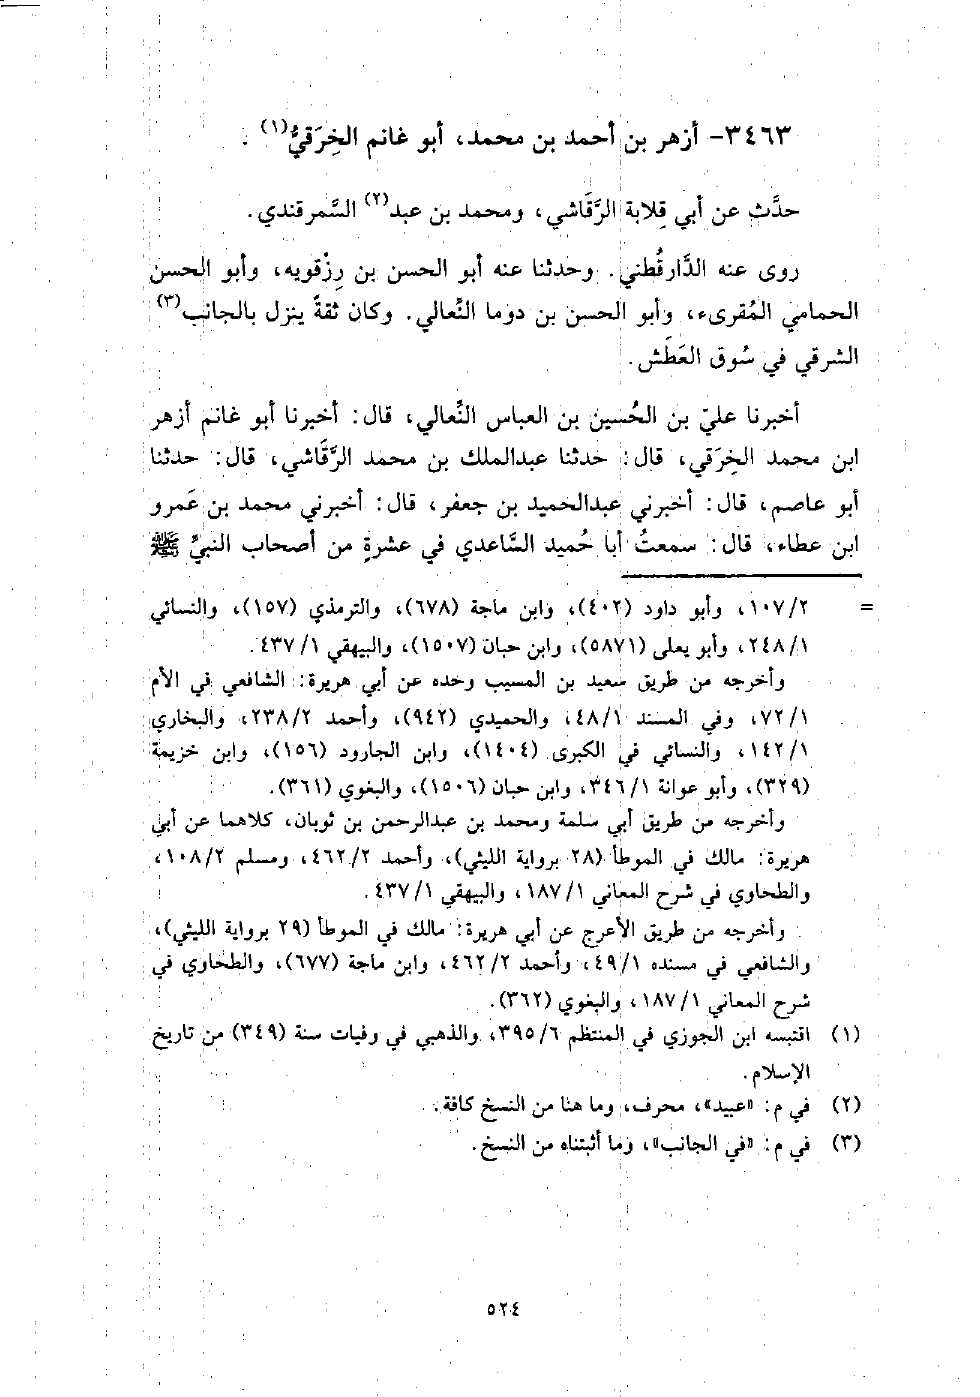 ٣٤٦٣- أزهر بن أحمد بن محمد، أبو غانم الخِرَقيُّ(١).
حدَّث عن أبي قِلابة الرَّقَاشي، ومحمد بن عبد(٢) السَّمرقندي.
روى عنه الدَّارقُطني. وحدثنا عنه أبو الحسن بن رِزْقويه، وأبو الحسن
الحمامي المُقرىء، وأبو الحسن بن دوما النِّعالي. وكان ثقةً ينزل بالجانب(٣)
الشرقي في سُوق العَطَش.
أخبرنا عليّ بن الحُسين بن العباس النِّعالي، قال: أخبرنا أبو غانم أزهر
ابن محمد الخِرَقي، قال: حدثنا عبدالملك بن محمد الرَّقَاشي، قال: حدثنا
أبو عاصم، قال: أخبرني عبدالحميد بن جعفر، قال: أخبرني محمد بن عَمرو
ابن عطاء، قال: سمعتُ أبا حُميد السَّاعدي في عشرةٍ من أصحاب النبيِّ ﷺ
= ١٠٧/٢، وأبو داود (٤٠٢)، وابن ماجة (٦٧٨)، والترمذي (١٥٧)، والنسائي
٢٤٨/١، وأبو يعلى (٥٨٧١)، وابن حبان (١٥٠٧)، والبيهقي ٤٣٧/١.
وأخرجه من طريق سعيد بن المسيب وحده عن أبي هريرة: الشافعي في الأم
٧٢/١، وفي المسند ٤٨/١، والحميدي (٩٤٢)، وأحمد ٢٣٨/٢، والبخاري
١٤٢/١، والنسائي في الكبرى (١٤٠٤)، وابن الجارود (١٥٦)، وابن خزيمة
(٣٢٩)، وأبو عوانة ٣٤٦/١، وابن حبان (١٥٠٦)، والبغوي (٣٦١).
وأخرجه من طريق أبي سلمة ومحمد بن عبدالرحمن بن ثوبان، كلاهما عن أبي
هريرة: مالك في الموطأ (٢٨ برواية الليثي)، وأحمد ٤٦٢/٢، ومسلم ١٠٨/٢،
والطحاوي في شرح المعاني ١٨٧/١، والبيهقي ٤٣٧/١.
وأخرجه من طريق الأعرج عن أبي هريرة: مالك في الموطأ (٢٩ برواية الليثي)،
والشافعي في مسنده ٤٩/١، وأحمد ٤٦٢/٢، وابن ماجة (٦٧٧)، والطحاوي في
شرح المعاني ١٨٧/١، والبغوي (٣٦٢).
(١) اقتبسه ابن الجوزي في المنتظم ٣٩٥/٦، والذهبي في وفيات سنة (٣٤٩) من تاريخ
الإسلام.
(٢) في م: «عبيد»، محرف، وما هنا من النسخ كافة.
(٣) في م: «في الجانب»، وما أثبتناه من النسخ.
٥٢٤